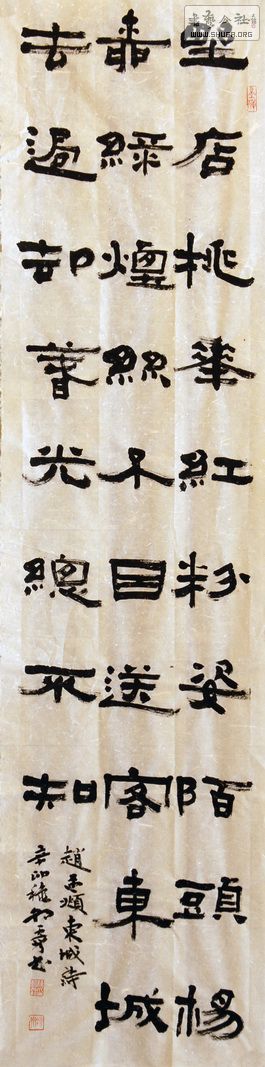 書藝公社
WWW.SHUFA.ORG
野店桃華紅粉姿陌頭楊
柳綠煙絲不因送客東城
去過却春光總不知
趙孟頫東城詩
辛卯秋 書